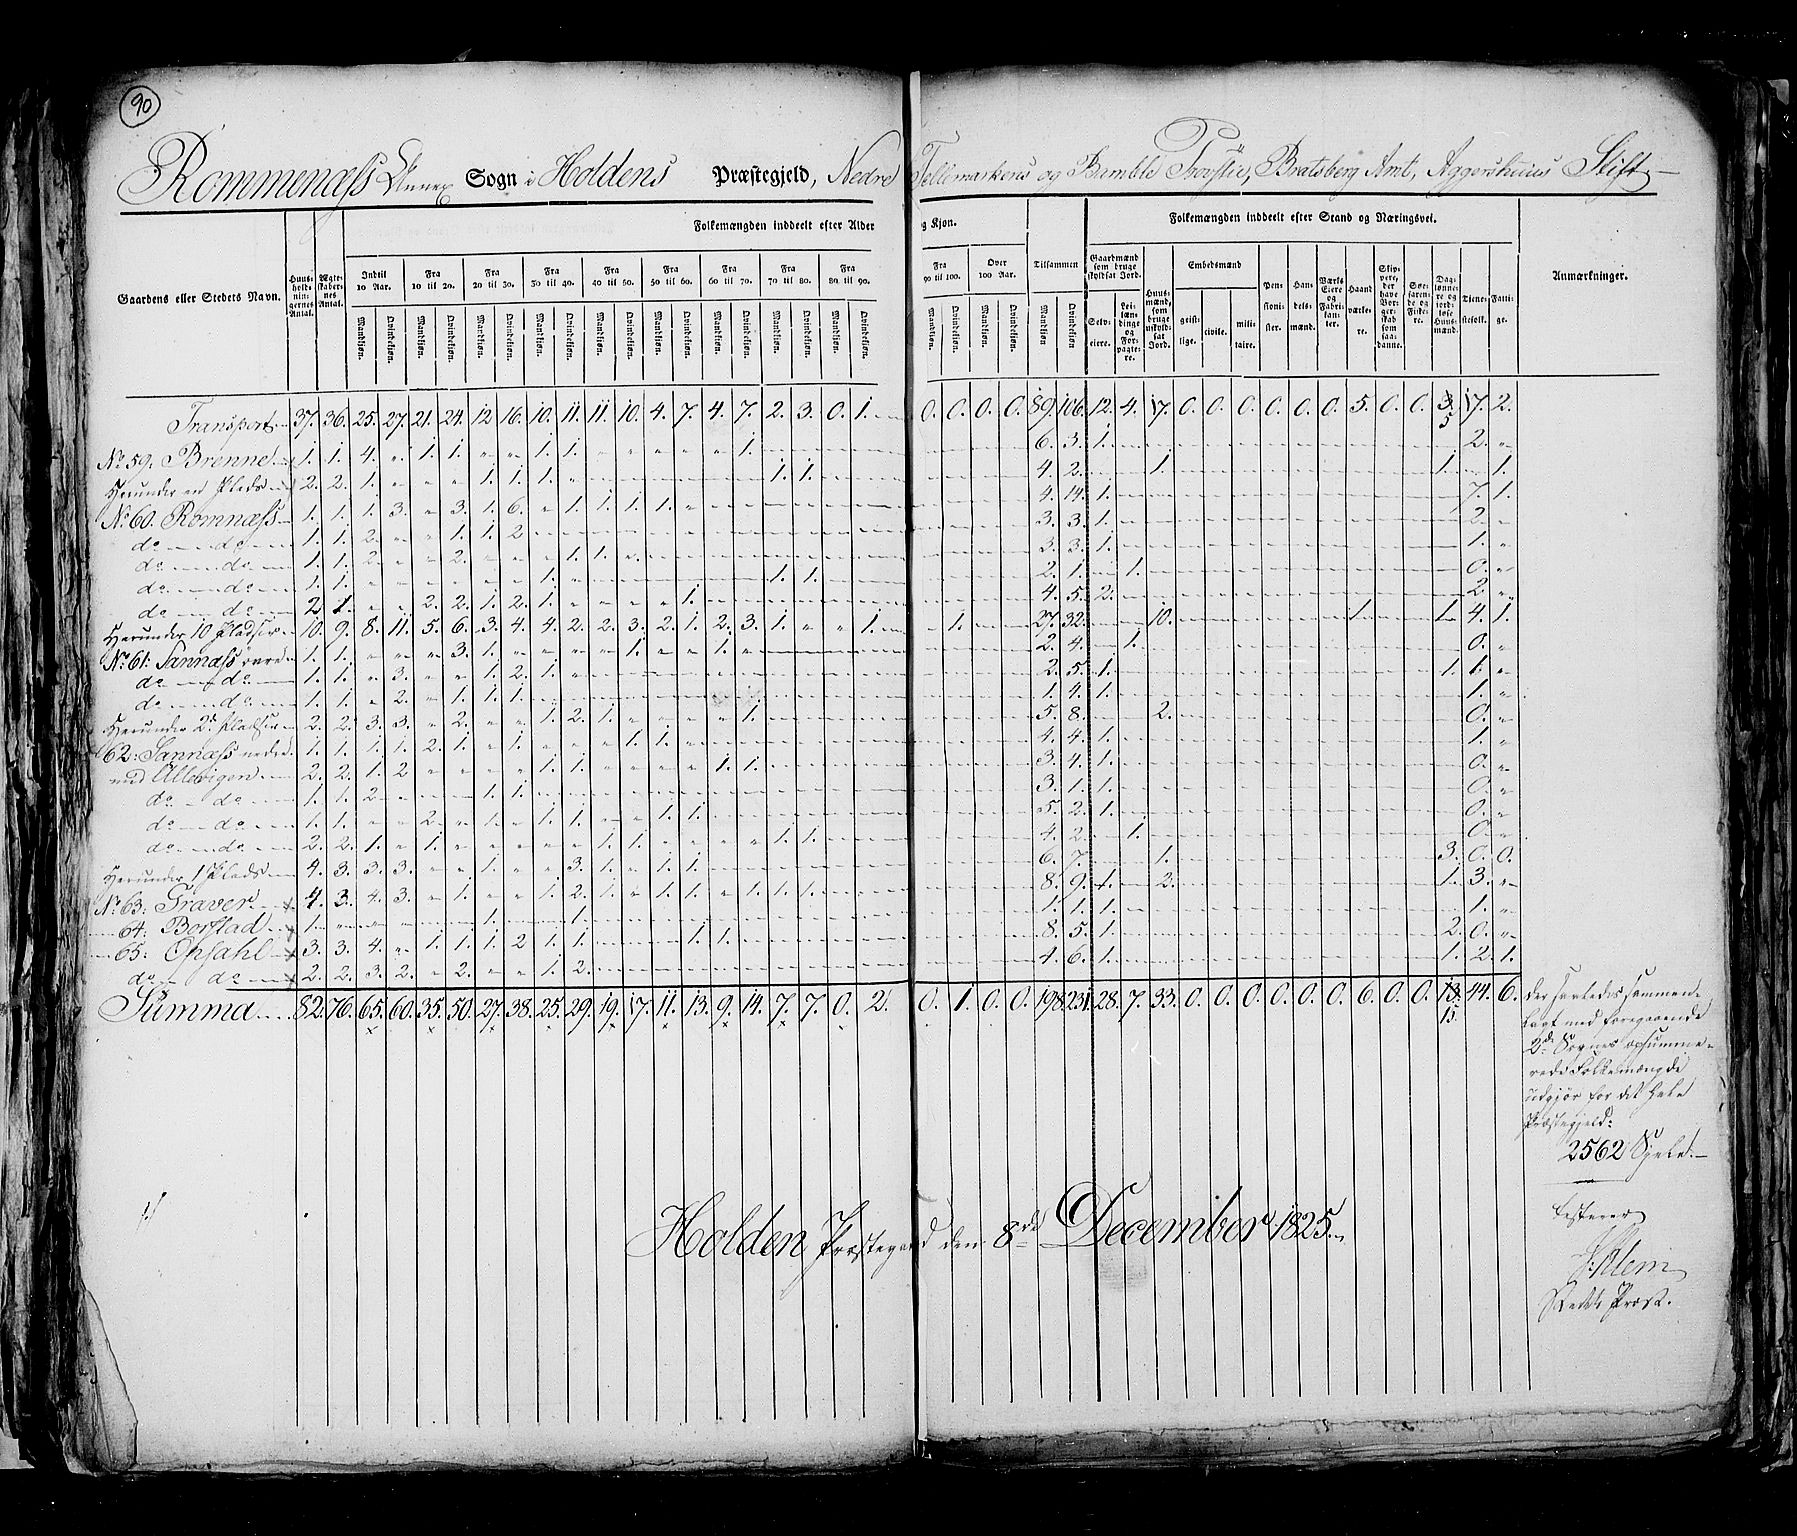 90
Rommenæss Annex Sogn i Holdens Præstegjeld, Nedre Tellemarkens og Bamble Provstie, Bratsberg Amt, Aggershuus Stift
Folkemængden inddeelt efter Alder og Kjøn.
Folkemængden inddeelt efter Stand og Næringsvei.
Gaardens eller Stedets Navn. Huusholdningernes Antal. Ægtefolkenes Antal. Indtil 10 Aar. Fra 10 til 20. Fra 20 til 30. Fra 30 til 40. Fra 40 til 50. Fra 50 til 60. Fra 60 til 70. Fra 70 til 80. Fra 80 til 90. Fra 90 til 100. Over 100 Aar. Tilsammen
Mandkjøn. Qvindekjøn.
Gaardmænd som bruge skyldsat Jord. Selveiere. Leilændinge og Forpagtere. Huusmænd, som bruge uskyldsat Jord. Embedsmænd geistlige. civile. militaire. Pensionister. Handelsmænd. Værks Eiere og Fabrikanter. Haandværkere. Skippere, der have Borgerskab som saadanne. Søefarende og Fiskere. Daglønnere og jordløse Huusmænd. Tjenestefolk. Fattige. Anmærkninger.
Transport 37. 36. 25. 27. 21. 24. 12. 16. 10. 11. 11. 10. 4. 7. 4. 7. 2. 3. 0. 1. 0. 0. 0. 0. 89. 106. 12. 4. 17. 0. 0. 0. 0. 0. 0. 5. 0. 0. 3. 5 17. 2.
No 59. Brenne 1. 1. 4. " 1. 1. " " 1. 1. " " " " " 1. 6. 3. 1. 2. "
Herunder en Plads 2. 2. 1. " " " 1. 1. 1. " 1. 1. 4. 2. 1. 1. 1.
No 60. Romnæss 1. 1. 1. 3. " 3. 1. 6. " 1. 1. 1. 1. " 4. 14. 1. 7. 1.
do do 1. 1. 2. " " 1. 1. 2 3. 3. 1. 2. "
do do 1. 1. 2. " " 2. " " " 1. 1. " 3. 3. 1. 1. "
do do 1. 1. " " " " " " 1. " 1. 1. 2. 1. 1. 0. "
do do 2. 1. " " 2. 2. 1. 2. 1. " " " " 1. 4. 5. 2. 2. "
Herunder 10 Pladser 10. 9. 8. 11. 5. 6. 3. 4. 4. 2. 2. 3. 2. 1. 2. 3. 1. " " 1. 1. 27. 32. 10. 1. 1. 4. 1.
No 61: Sannæss øvre 1. 1. " " " 3. 1. " " " " 1. " " 1. " 2. 4. 1. 0. "
do do 1. 1. " 3. " " 1. 2. 1. " 2. 5. 1. 1. 1. "
do do 1. 1. " 2. " 1. 1. 1. 1. 4. 1. 1. "
Herunder 2de Pladser 2. 2. 3. 3. " 2. " " 1. 2. 1. " " " " 1. 5. 8. 2. 0. "
62: Sannæss nedre 1. 1. 1. 1. 2. 1. " 1. " " " 1. 1. 4. 4. 1. 1. "
med Allerigen 2. 2. 1. 2 " " " " 1. 1. " " " " 1. 1. 3. 4. 1. 0. "
do do 1. 1. 2 " " " 1. 1. 3. 1. 1. 0. "
do do 1. 1. " " 2. " 1. " 1. 1. " " 1. 1. 5. 2. 1. 0. "
do do 2. 2. 1. " 1. " " " " " 1. 1. " " " " 1. 1. 4. 2. 1. 0. "
Herunder 1 Plads 4. 3. 3. 3. " " 1. " " 3. 1. " 1. 1. 6. 7. 1. 3. 0. 0.
No 63: Graver 4. 3. 4. 3. " 1. " " 1. 2. 1. " 1. 1. " 1. 1. 1. 8. 9. 1. 2. 1. 3. "
64: Borstad 1. " " " " " 1. " " 1. 1. 1. 1. 1. "
65: Opsahl 3. 3. 4. " 1. 1. 1. 2 1. 1. 1. 1. 8. 5. 1. 2. 0. "
do do 2. 2. 3. 2. " 2. " " 1. 2. 4. 6. 1. 1. 2. 1.
Summa 82. 76. 65. 60. 35. 50. 27. 38. 25. 29. 19. 17. 11. 13. 9. 14. 7. 7. 0. 2. 0. 1. 0. 0. 198. 231. 28. 7. 33. 0. 0. 0. 0. 0. 0. 6. 0. 0. 13. 15. 44. 6.
der saaledes sammen
lagt med foregaaende
2de Sognes opsumme
rede Folkemængde
udgjør for det hele
Præstegjeld:
2562 Sjele.
Holden Præstegaard den 8de December 1825.
testerer
Præst.